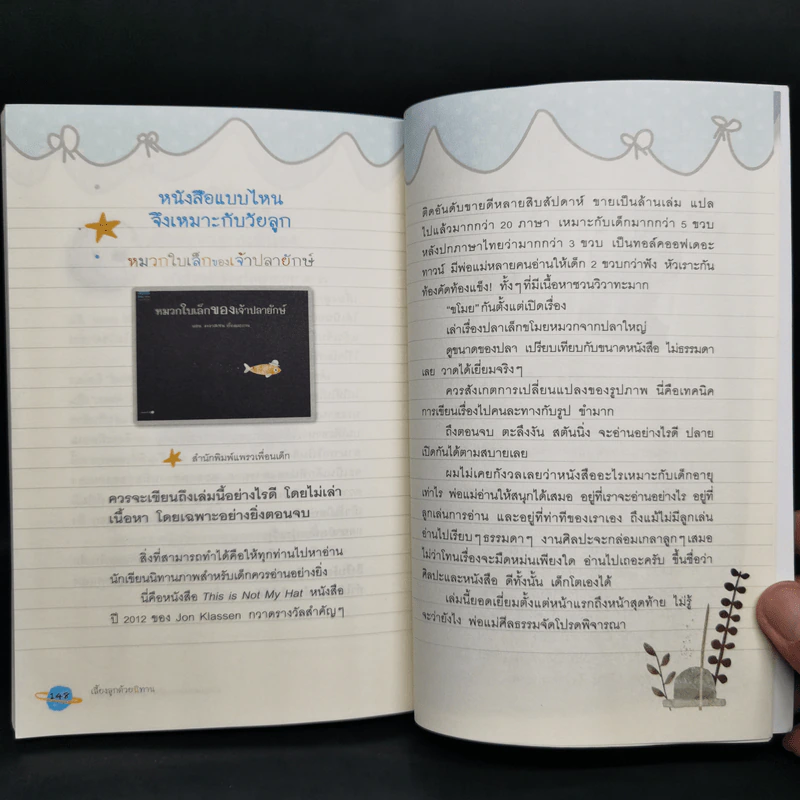 หนังสือแบบไหน
จึงเหมาะกับวัยลูก
หมวกใบเล็กของเจ้าปลายักษ์
หมวกใบเล็กของเจ้าปลายักษ์
สำนักพิมพ์แพรวเพื่อนเด็ก
ควรจะเขียนถึงเล่มนี้อย่างไรดี โดยไม่เล่า
เนื้อหา โดยเฉพาะอย่างยิ่งตอนจบ
สิ่งที่สามารถทำได้คือให้ทุกท่านไปหาอ่าน
นักเขียนนิทานภาพสำหรับเด็กควรอ่านอย่างยิ่ง
นี่คือหนังสือ This is Not My Hat หนังสือ
ปี 2012 ของ Jon Klassen กวาดรางวัลสำคัญๆ
148 เลี้ยงลูกด้วยนิทาน
ติดอันดับขายดีหลายสิบสัปดาห์ ขายเป็นล้านเล่ม แปล
ไปแล้วมากกว่า 20 ภาษา เหมาะกับเด็กมากกว่า 5 ขวบ
หลังปกภาษาไทยว่ามากกว่า 3 ขวบ เป็นทอล์คออฟเดอะ
ทาวน์ มีพ่อแม่หลายคนอ่านให้เด็ก 2 ขวบกว่าฟัง หัวเราะกัน
ท้องคัดท้องแข็ง! ทั้งๆที่มีเนื้อหาชวนวิวาทะมาก
"ขโมย" กันตั้งแต่เปิดเรื่อง
เล่าเรื่องปลาเล็กขโมยหมวกจากปลาใหญ่
ดูขนาดของปลา เปรียบเทียบกับขนาดหนังสือ ไม่ธรรมดา
เลย วาดได้เยี่ยมจริงๆ
ควรสังเกตการเปลี่ยนแปลงของรูปภาพ นี่คือเทคนิค
การเขียนเรื่องไปคนละทางกับรูป ขำมาก
ถึงตอนจบ ตะลึงงัน สตันนิ่ง จะอ่านอย่างไรดี ปลาย
เปิดกันได้ตามสบายเลย
ผมไม่เคยกังวลเลยว่าหนังสืออะไรเหมาะกับเด็กอายุ
เท่าไร พ่อแม่อ่านให้สนุกได้เสมอ อยู่ที่เราจะอ่านอย่างไร อยู่ที่
ลูกเล่นการอ่าน และอยู่ที่ท่าทีของเราเอง ถึงแม้ไม่มีลูกเล่น
อ่านไปเรียบๆธรรมดาๆ งานศิลปะจะกล่อมเกลาลูกๆเสมอ
ไม่ว่าโทนเรื่องจะมืดหม่นเพียงใด อ่านไปเถอะครับ ขึ้นชื่อว่า
ศิลปะและหนังสือ ดีทั้งนั้น เด็กโตเองได้
เล่มนี้ยอดเยี่ยมตั้งแต่หน้าแรกถึงหน้าสุดท้าย ไม่รู้
จะว่ายังไง พ่อแม่ศีลธรรมจัดโปรดพิจารณา